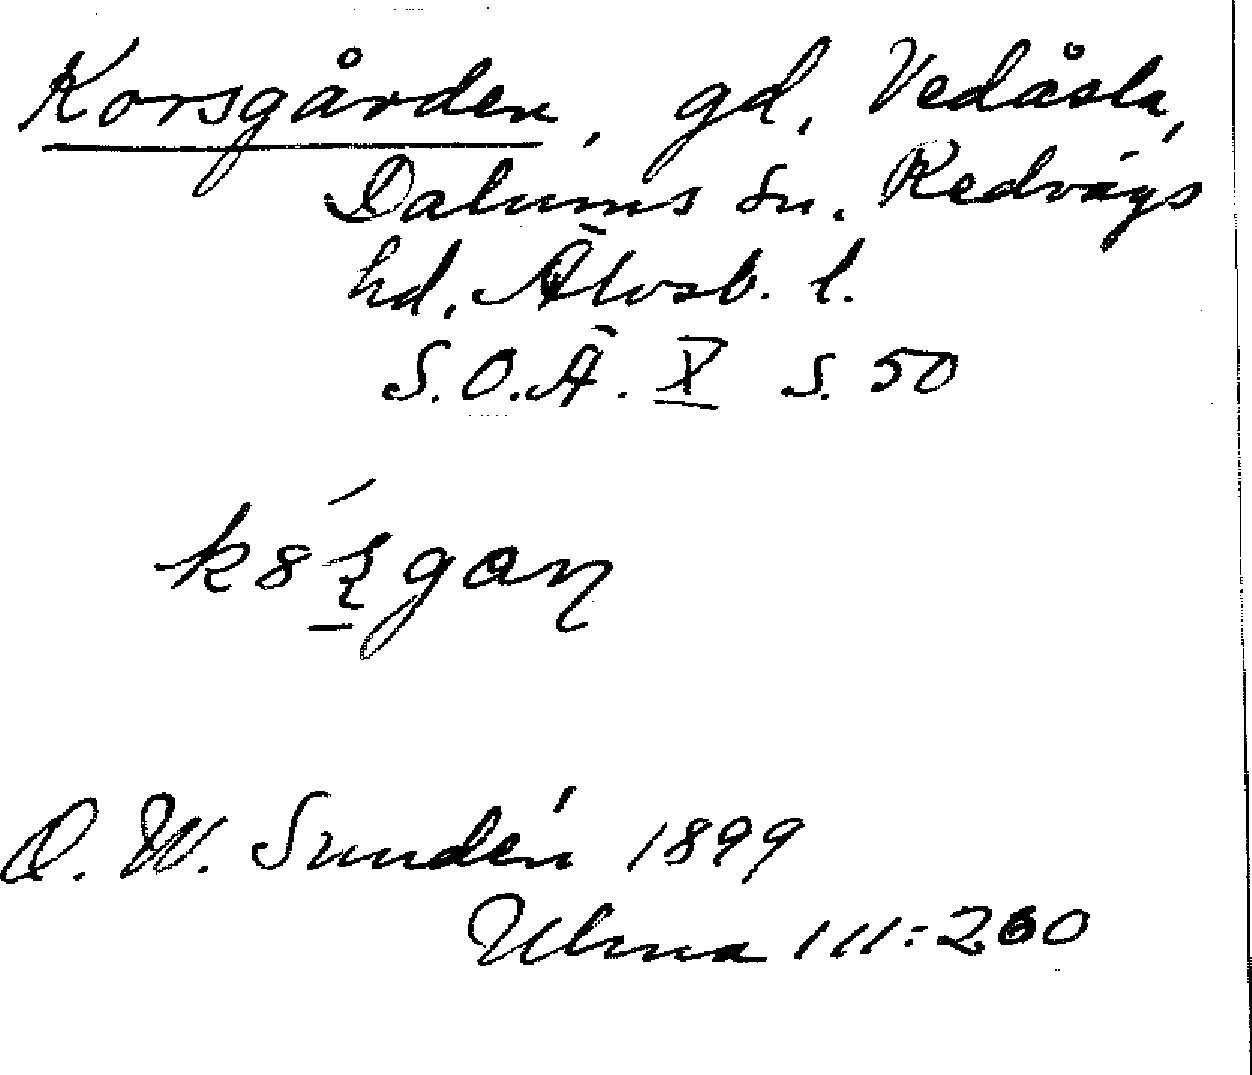 Korsgården, gd, Vedåsla,
Dalums sn. Redvägs
hd, Älvsb. l.
S.O.Ä. X s. 50
D. W. Sundén 1899
Ulma 111:260